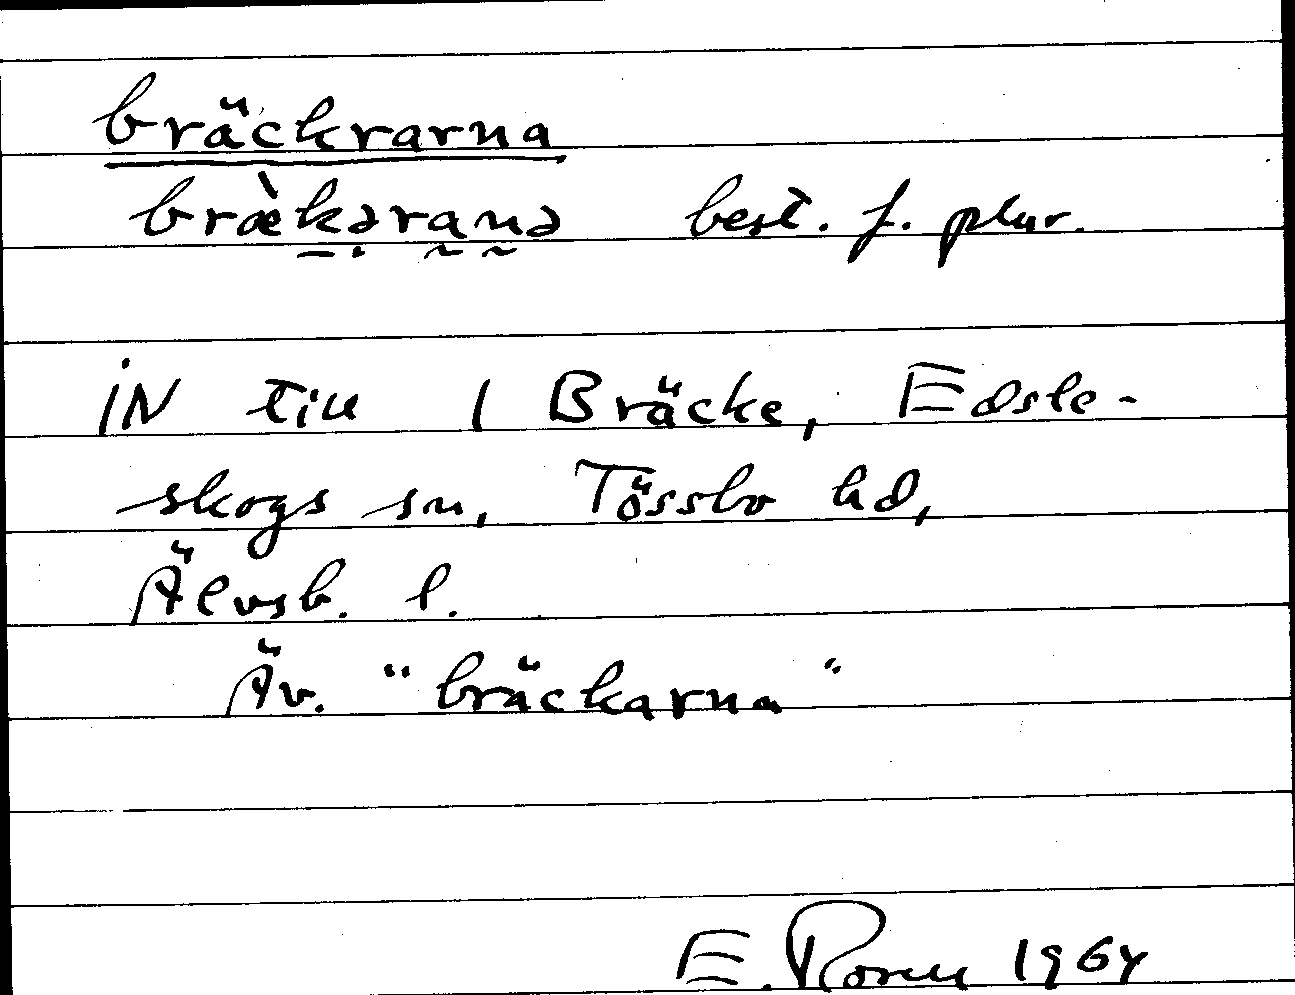 bräckrarna
bræ̀kəranə best. f. plur.
iN till 1 Bräcke, Edsle-
skogs sn, Tössbo hd,
Älvsb. l.
Äv. "bräckarna"
E. 1964